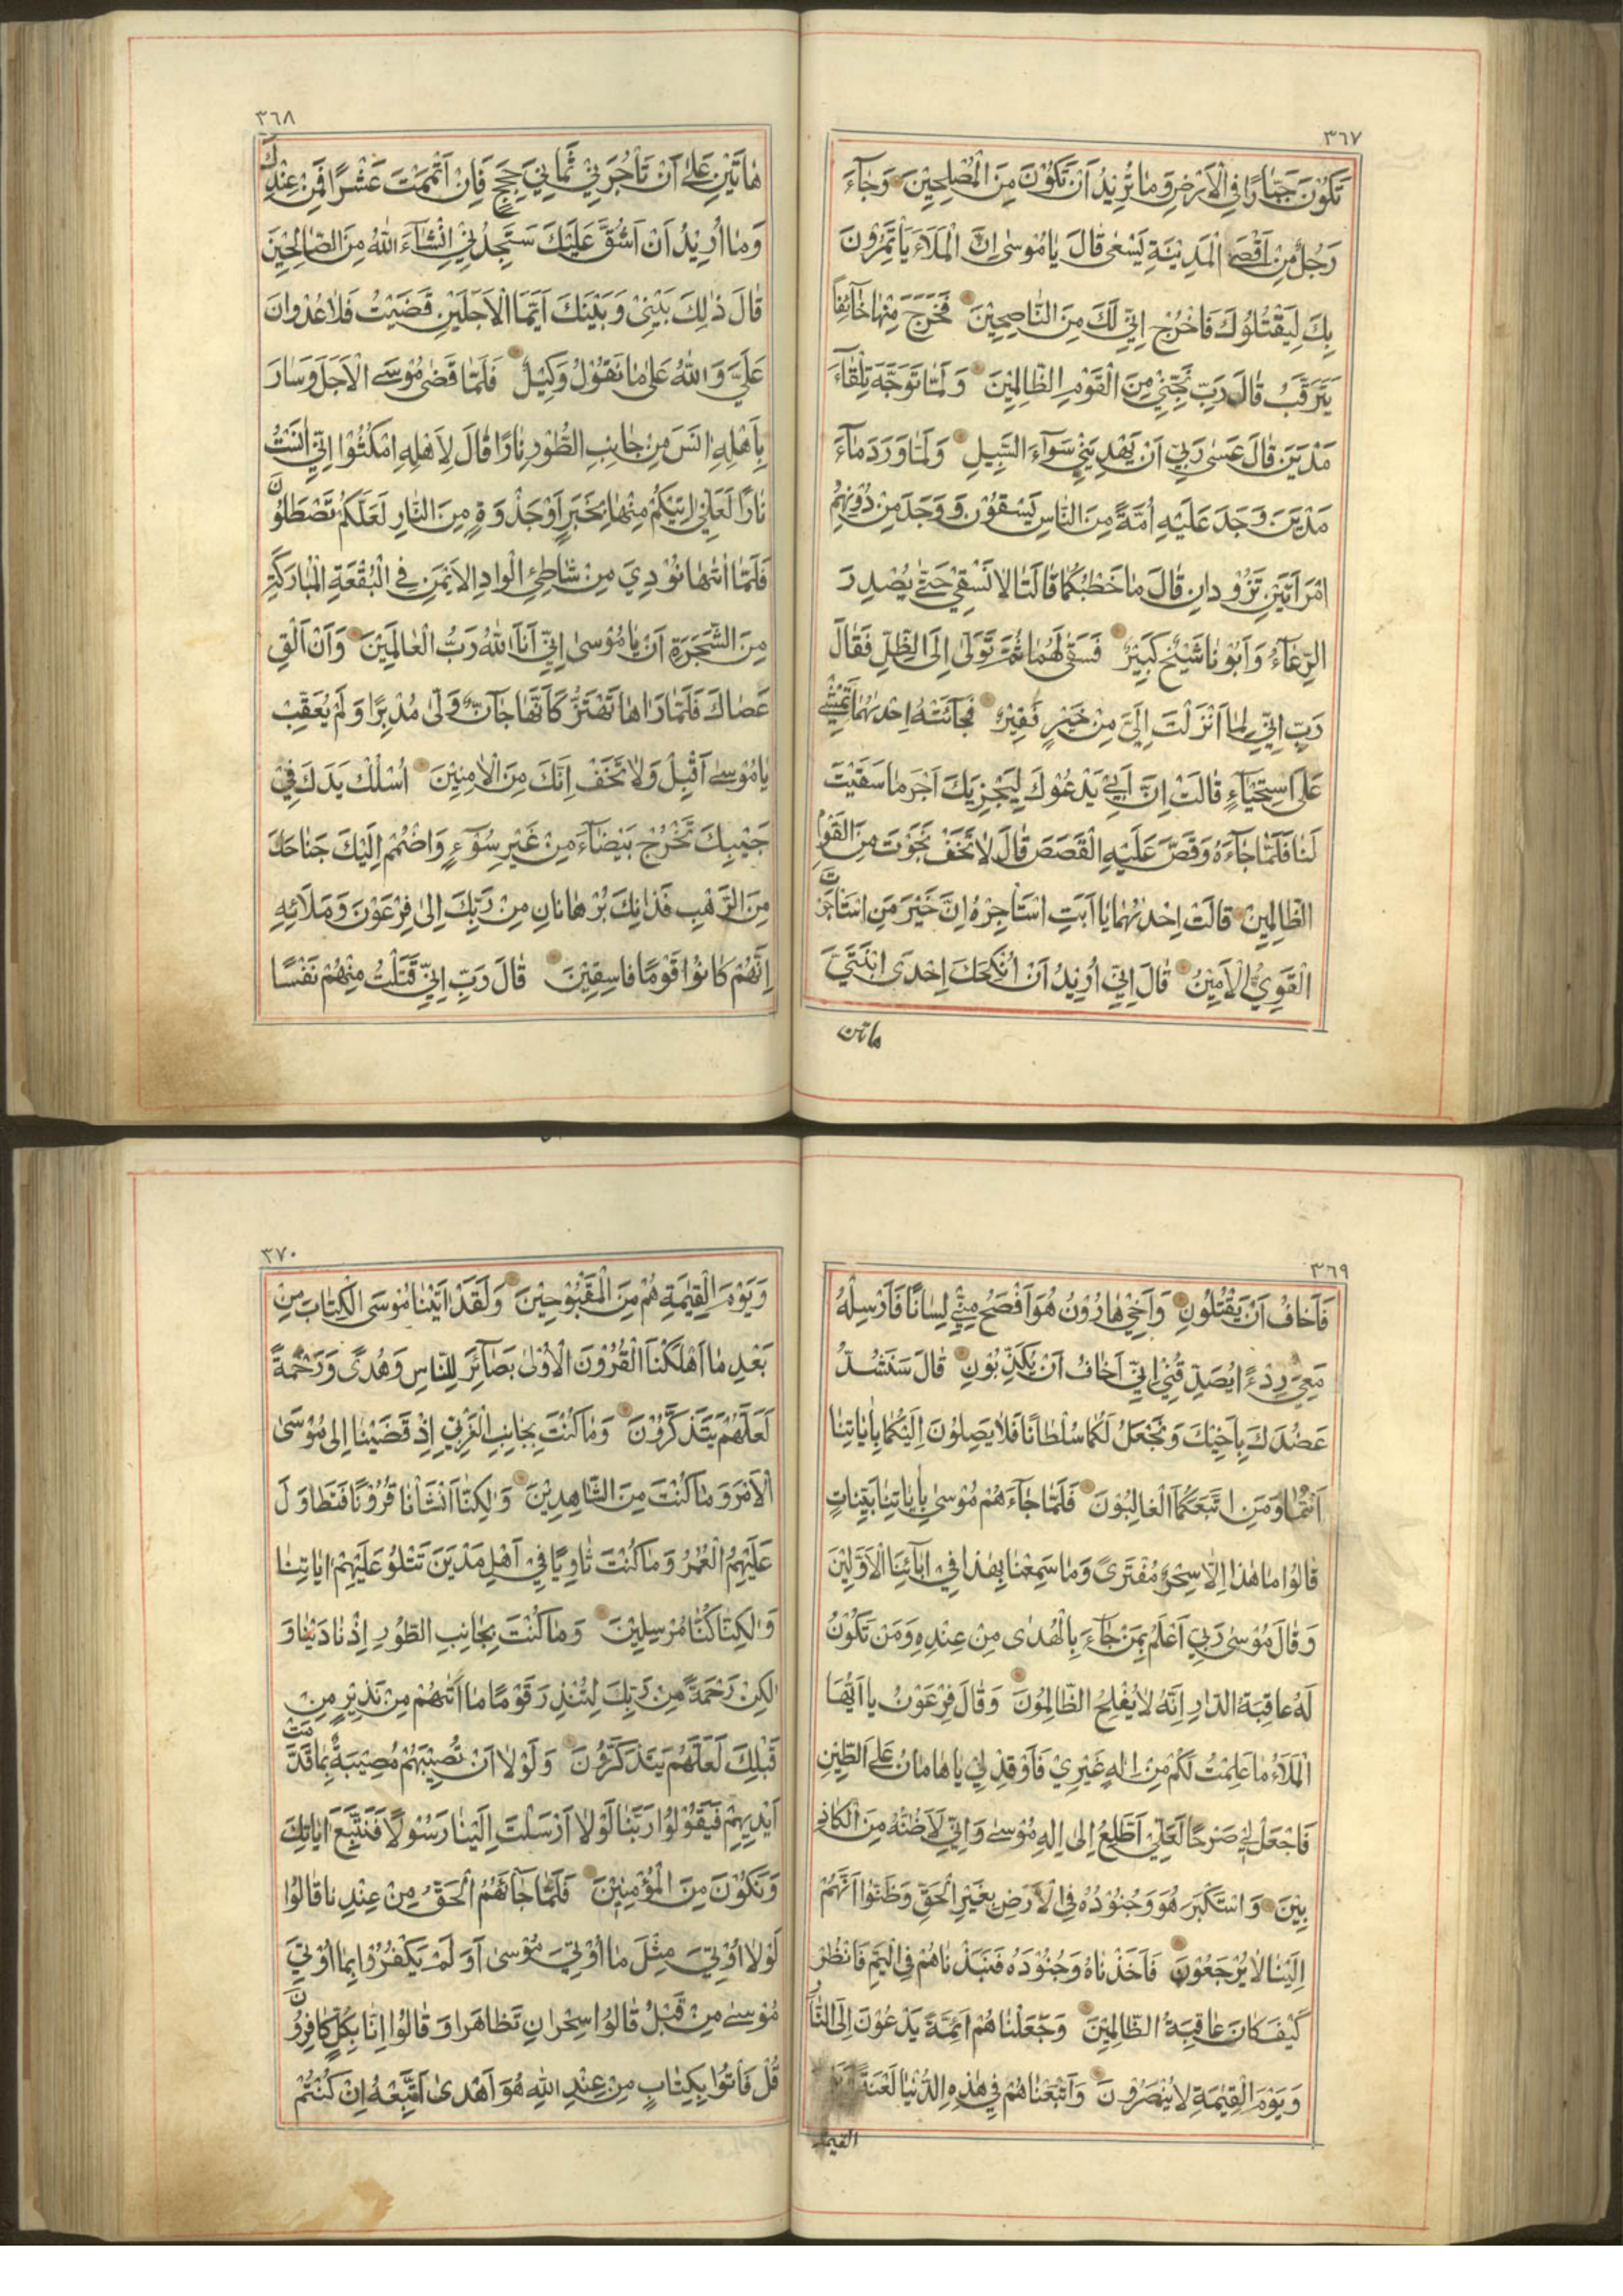 ٣٦٧
تَكُوْنَ جَبّٰارًا فِي الْاَرْضِ وَمٰا تُرِيْدُ اَنْ تَكُوْنَ مِنَ الْمُصْلِحِيْنَ وَجٰآءَ
رَجُلٌ مِنْ اَقْصَى الْمَدِيْنَةِ يَسْعٰى قٰالَ يٰا مُوْسٰى اِنَّ الْمَلَاَ يَاْتَمِرُوْنَ
بِكَ لِيَقْتُلُوْكَ فَاخْرُجْ اِنّيْ لَكَ مِنَ النّٰاصِحِيْنَ فَخَرَجَ مِنْهٰا خٰآئِفًا
يَتَرَقَّبُ قٰالَ رَبِّ نَجِّنِيْ مِنَ الْقَوْمِ الظّٰالِمِيْنَ وَلَمّٰا تَوَجَّهَ تِلْقٰآءَ
مَدْيَنَ قٰالَ عَسٰى رَبّيْ اَنْ يَهْدِيَنيْ سَوٰآءَ السَّبِيلِ وَلَمّٰا وَرَدَ مٰآءَ
مَدْيَنَ وَجَدَ عَلَيْهِ اُمَّةً مِنَ النّٰاسِ يَسْقُوْنَ وَوَجَدَ مِنْ دُوْنِهِمُ
امْرَاَتَيْنِ تَذُوْدانِ قٰالَ مٰا خَطْبُكُمٰا قٰالَتٰا لاٰ نَسْقيْ حَتّٰى يُصْدِرَ
الرِّعٰآءُ وَاَبُوْنٰا شَيْخٌ كَبيْرٌ فَسَقٰى لَهُمٰا ثُمَّ تَوَلّٰى اِلَى الظِّلِّ فَقٰالَ
رَبِّ اِنّيْ لِمٰا اَنْزَلْتَ اِلَيَّ مِنْ خَيْرٍ فَقِيْرٌ فَجٰآئَتْهُ اِحْدٰىهُمٰا تَمْشيْ
عَلَى اسْتِحْيٰآءٍ قٰالَتْ اِنَّ اَبيْ يَدْعُوْكَ لِيَجْزِيَكَ اَجْرَ مٰا سَقَيْتَ
لَنٰا فَلَمّٰا جٰآءَهُ وَقَصَّ عَلَيْهِ الْقَصَصَ قٰالَ لاٰ تَخَفْ نَجَوْتَ مِنَ الْقَوْمِ
الظّٰالِمِيْنَ قٰالَتْ اِحْدٰىهُمٰا يٰا اَبَتِ اسْتَاْجِرْهُ اِنَّ خَيْرَ مَنِ اسْتَاْجَرْتَ
الْقَوِيُّ الْاَمِيْنُ قٰالَ اِنّيْ اُرِيْدُ اَنْ اُنْكِحَكَ اِحْدَى ابْنَتَيَّ
هاتين
٣٦٨
هٰاتَيْنِ عَلٰى اَنْ تَاْجُرَنيْ ثَمٰانِيَ حِجَجٍ فَاِنْ اَتْمَمْتَ عَشْرًا فَمِنْ عِنْدِكَ
وَمٰا اُرِيْدُ اَنْ اَشُقَّ عَلَيْكَ سَتَجِدُنيْ اِنْشٰآءَ اللّٰهُ مِنَ الصّٰالِحِيْنَ
قٰالَ ذٰلِكَ بَيْنِيْ وَبَيْنَكَ اَيَّمَا الْاَجَلَيْنِ قَضَيْتُ فَلاٰ عُدْوانَ
عَلَيَّ وَاللّٰهُ عَلٰى مٰا نَقُوْلُ وَكيْلٌ فَلَمّٰا قَضٰى مُوْسَى الْاَجَلَ وَسٰارَ
بِاَهْلِهِ اٰنَسَ مِنْ جٰانِبِ الطُّوْرِ نٰارًا قٰالَ لِاَهْلِهِ امْكُثُوْا اِنّيْ اٰنَسْتُ
نٰارًا لَعَلّيْ اٰتِيْكُمْ مِنْهٰا بِخَبَرٍ اَوْ جَذْوَةٍ مِنَ النّٰارِ لَعَلَّكُمْ تَصْطَلُوْنَ
فَلَمّٰا اَتٰىهٰا نُوْدِيَ مِنْ شٰاطِئِ الْوادِ الْاَيْمَنِ فِي الْبُقْعَةِ الْمُبٰارَكَةِ
مِنَ الشَّجَرَةِ اَنْ يٰا مُوْسٰى اِنّيْ اَنَا اللّٰهُ رَبُّ الْعٰالَمِيْنَ وَاَنْ اَلْقِ
عَصٰاكَ فَلَمّٰا رَاٰهٰا تَهْتَزُّ كَاَنَّهٰا جٰآنٌّ وَلّٰى مُدْبِرًا وَلَمْ يُعَقِّبْ
يٰا مُوْسٰى اَقْبِلْ وَلاٰ تَخَفْ اِنَّكَ مِنَ الْاٰمِنِيْنَ اُسْلُكْ يَدَكَ فيْ
جَيْبِكَ تَخْرُجْ بَيْضٰآءَ مِنْ غَيْرِ سُوْءٍ وَاضْمُمْ اِلَيْكَ جَنٰاحَكَ
مِنَ الرَّهْبِ فَذٰانِكَ بُرْهٰانٰانِ مِنْ رَبِّكَ اِلٰى فِرْعَوْنَ وَمَلَائِهِ
اِنَّهُمْ كٰانُوْا قَوْمًا فٰاسِقِيْنَ قٰالَ رَبِّ اِنّيْ قَتَلْتُ مِنْهُمْ نَفْسًا
٣٦٩
فَاَخٰافُ اَنْ يَقْتُلُونِ وَاَخيْ هٰارُوْنُ هُوَ اَفْصَحُ مِنّيْ لِسٰانًا فَاَرْسِلْهُ
مَعِيَ رِدْءًا يُصَدِّقُنيْ اِنّيْ اَخٰافُ اَنْ يُكَذِّبُوْنِ قٰالَ سَنَشُدُّ
عَضُدَكَ بِاَخيْكَ وَنَجْعَلُ لَكُمٰا سُلْطٰانًا فَلاٰ يَصِلُوْنَ اِلَيْكُمٰا بِاٰيٰاتِنٰا
اَنْتُمٰا وَمَنِ اتَّبَعَكُمَا الْغٰالِبُوْنَ فَلَمّٰا جٰآءَهُمْ مُوْسٰى بِاٰيٰاتِنٰا بَيِّنٰاتٍ
قٰالُوْا مٰا هٰذٰا اِلّٰا سِحْرٌ مُفْتَرًى وَمٰا سَمِعْنٰا بِهٰذٰا فيْ اٰبٰآئِنَا الْاَوَّليْنَ
وَقٰالَ مُوْسٰى رَبّيْ اَعْلَمُ بِمَنْ جٰآءَ بِالْهُدٰى مِنْ عِنْدِهِ وَمَنْ تَكُوْنُ
لَهُ عٰاقِبَةُ الدّارِ اِنَّهُ لاٰ يُفْلِحُ الظّٰالِمُوْنَ وَقٰالَ فِرْعَوْنُ يٰا اَيُّهَا
الْمَلَاُ مٰا عَلِمْتُ لَكُمْ مِنْ اِلٰهٍ غَيْرِيْ فَاَوْقِدْ ليْ يٰا هٰامٰانُ عَلَى الطّيْنِ
فَاجْعَلْ ليْ صَرْحًا لَعَلّيْ اَطَّلِعُ اِلٰى اِلٰهِ مُوْسٰى وَاِنّيْ لَاَظُنُّهُ مِنَ الْكاذِ
بيْنَ وَاسْتَكْبَرَ هُوَ وَجُنُوْدُهُ فِي الْاَرْضِ بِغَيْرِ الْحَقِّ وَظَنُّوْا اَنَّهُمْ
اِلَيْنٰا لاٰ يُرْجَعُوْنَ فَاَخَذْنٰاهُ وَجُنُوْدَهُ فَنَبَذْنٰاهُمْ فِي الْيَمِّ فَانْظُرْ
كَيْفَ كٰانَ عٰاقِبَةُ الظّٰالِمِيْنَ وَجَعَلْنٰاهُمْ اَئِمَّةً يَدْعُوْنَ اِلَى النّٰارِ
وَيَوْمَ الْقِيٰمَةِ لاٰ يُنْصَرُوْنَ وَاَتْبَعْنٰاهُمْ فيْ هٰذِهِ الدُّنْيٰا لَعْنَةً
القيمة
٣٧٠
وَيَوْمَ الْقِيٰمَةِ هُمْ مِنَ الْمَقْبُوْحيْنَ وَلَقَدْ اٰتَيْنٰا مُوْسَى الْكِتٰابَ مِنْ
بَعْدِ مٰا اَهْلَكْنَا الْقُرُوْنَ الْاُوْلٰى بَصٰآئِرَ لِلنّٰاسِ وَهُدًى وَرَحْمَةً
لَعَلَّهُمْ يَتَذَكَّرُوْنَ وَمٰا كُنْتَ بِجٰانِبِ الْغَرْبيِّ اِذْ قَضَيْنٰا اِلٰى مُوْسَى
الْاَمْرَ وَمٰا كُنْتَ مِنَ الشّٰاهِدِيْنَ وَلٰكِنّٰا اَنْشَاْنٰا قُرُوْنًا فَتَطٰاوَلَ
عَلَيْهِمُ الْعُمُرُ وَمٰا كُنْتَ ثٰاوِيًا فيْ اَهْلِ مَدْيَنَ تَتْلُوْ عَلَيْهِمْ اٰيٰاتِنٰا
وَلٰكِنّٰا كُنّٰا مُرْسِليْنَ وَمٰا كُنْتَ بِجٰانِبِ الطُّوْرِ اِذْ نٰادَيْنٰا وَ
لٰكِنْ رَحْمَةً مِنْ رَبِّكَ لِتُنْذِرَ قَوْمًا مٰا اَتٰىهُمْ مِنْ نَذيْرٍ مِنْ
قَبْلِكَ لَعَلَّهُمْ يَتَذَكَّرُوْنَ وَلَوْلاٰ اَنْ تُصيْبَهُمْ مُصيْبَةٌ بِمٰا قَدَّمَتْ
اَيْديْهِمْ فَيَقُوْلُوْا رَبَّنٰا لَوْلاٰ اَرْسَلْتَ اِلَيْنٰا رَسُوْلًا فَنَتَّبِعَ اٰيٰاتِكَ
وَنَكُوْنَ مِنَ الْمُؤْمِنيْنَ فَلَمّٰا جٰآئَهُمُ الْحَقُّ مِنْ عِنْدِنٰا قٰالُوْا
لَوْلاٰ اُوْتِيَ مِثْلَ مٰا اُوْتِيَ مُوْسٰى اَوَ لَمْ يَكْفُرُوْا بِمٰا اُوْتِيَ
مُوْسٰى مِنْ قَبْلُ قٰالُوْا سِحْرانِ تَظٰاهَرا وَقٰالُوْا اِنّٰا بِكُلٍّ كٰافِرُوْنَ
قُلْ فَاْتُوْا بِكِتٰابٍ مِنْ عِنْدِ اللّٰهِ هُوَ اَهْدٰى اَتَّبِعْهُ اِنْ كُنْتُمْ